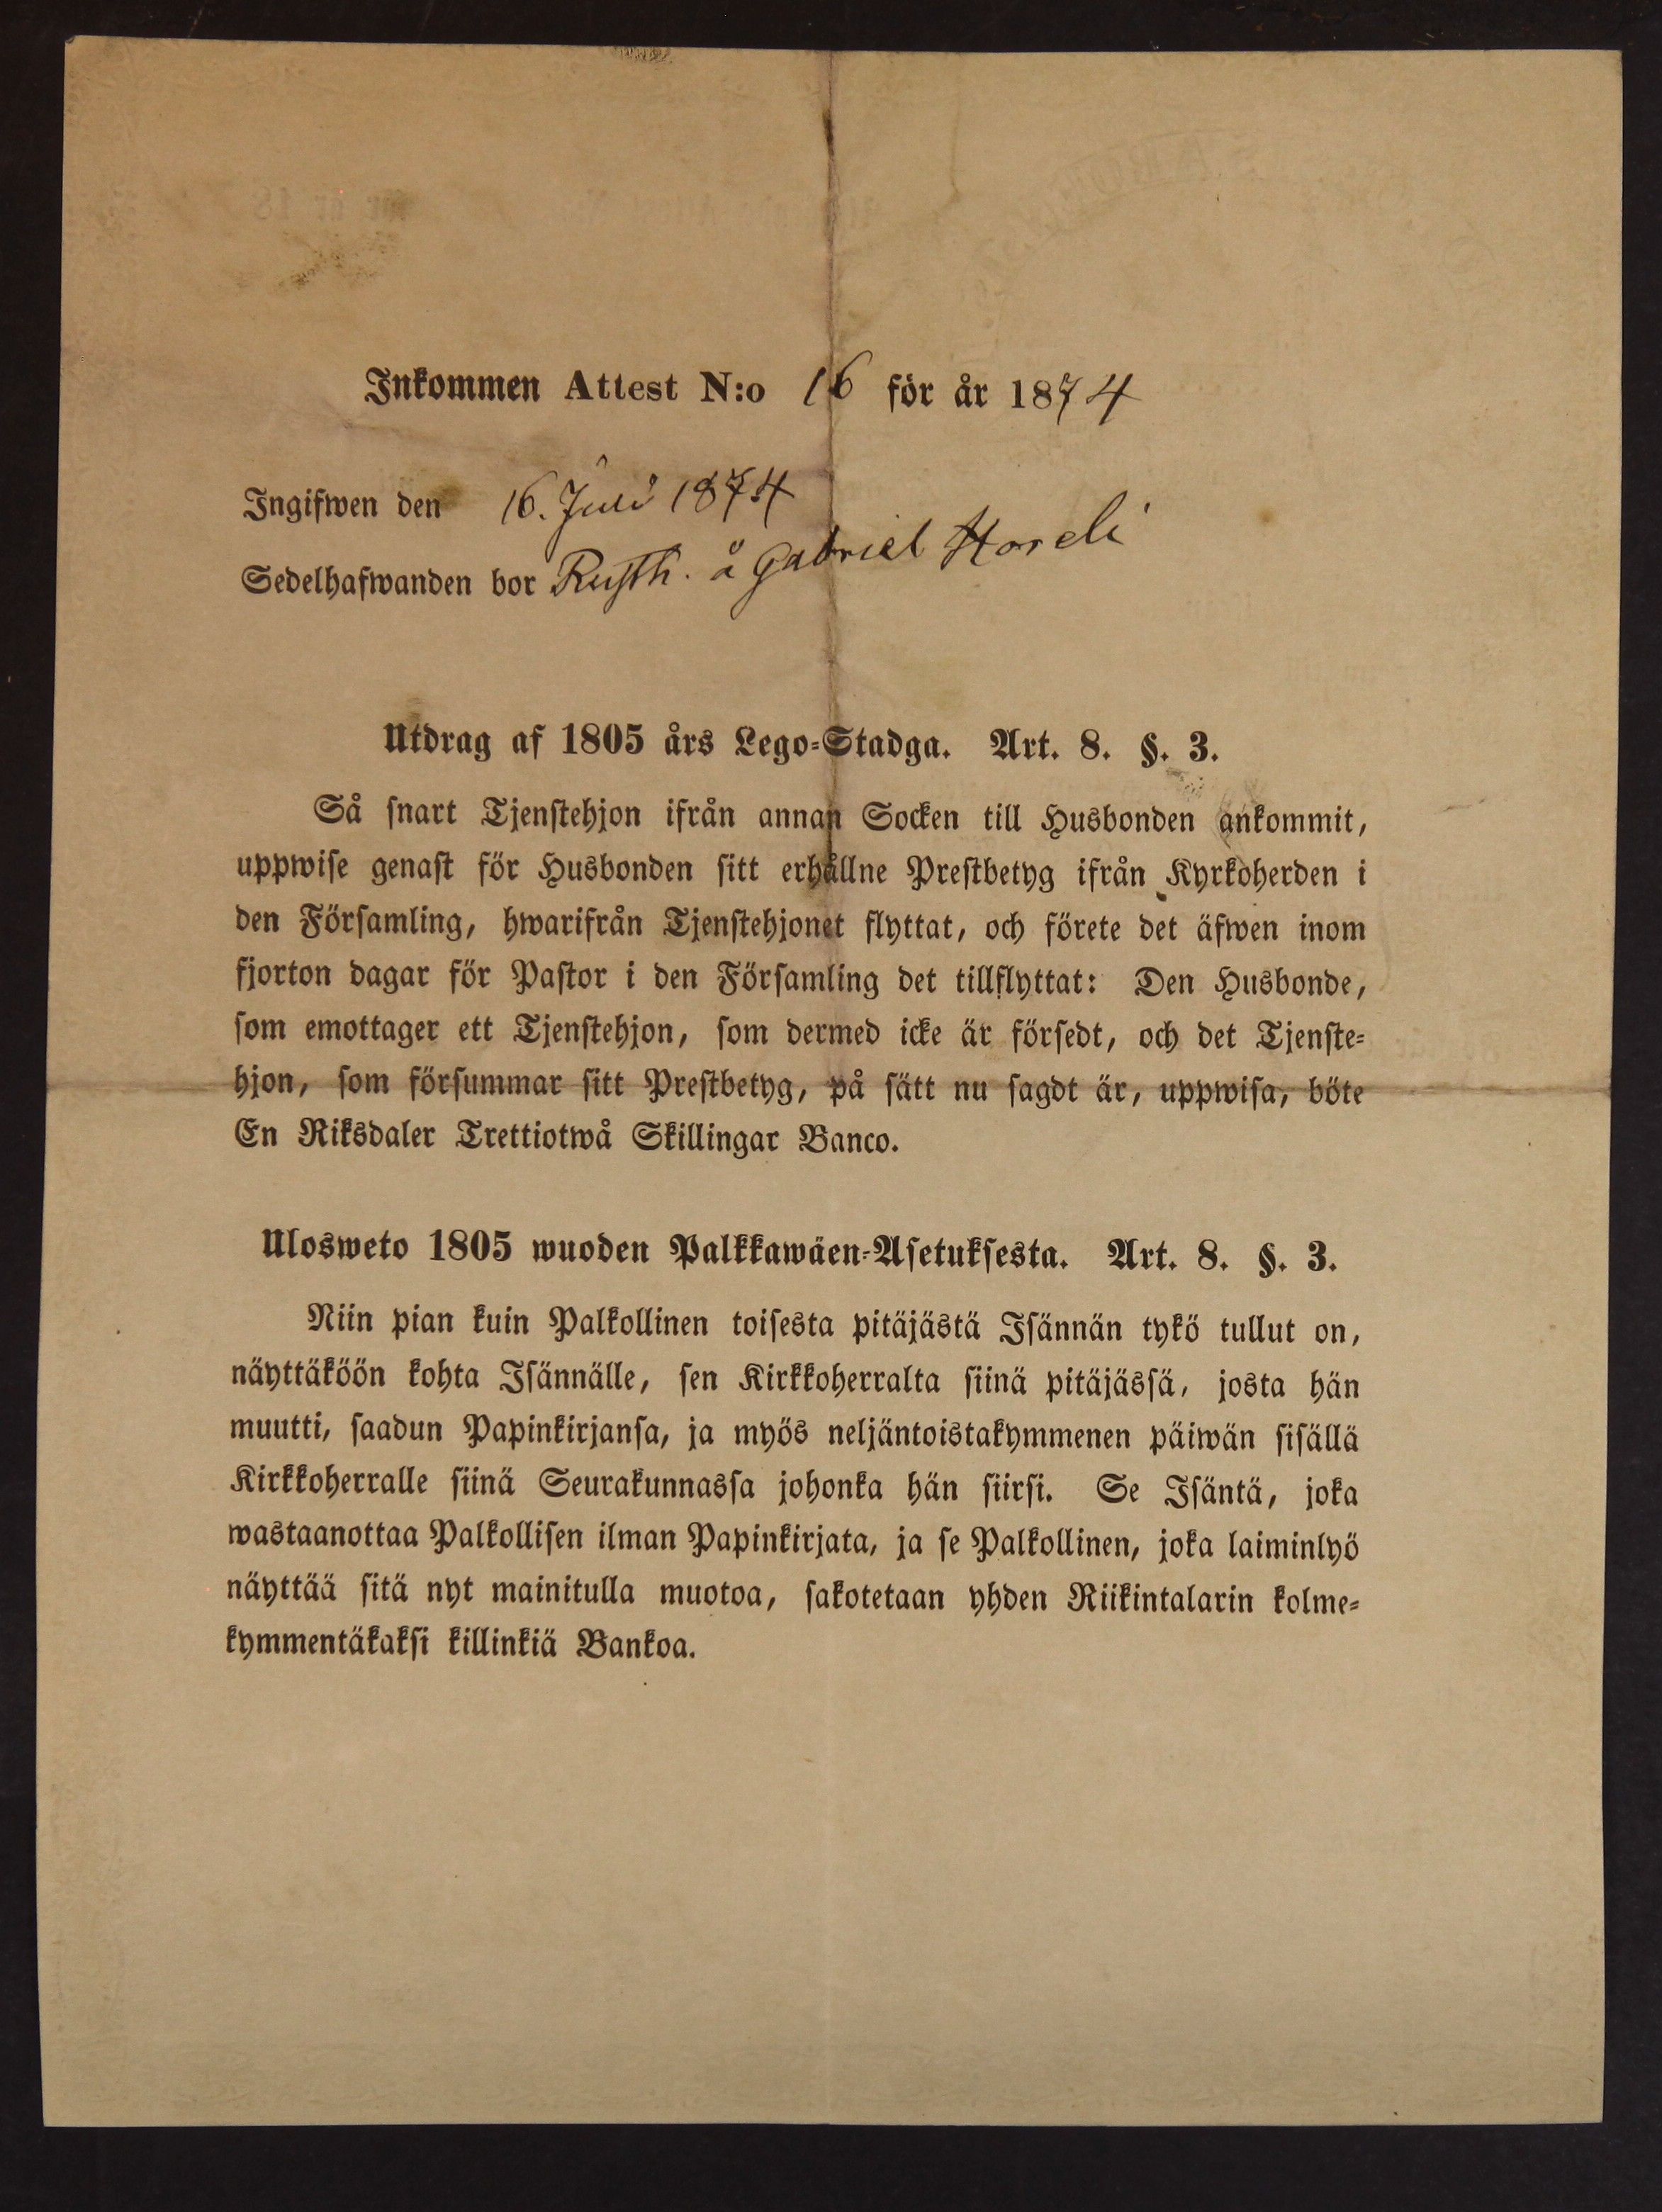 Inkommen Attest N:o 16 för år 1874
Ingifwen den 16. Juli 1874
Sedelhafwanden bor Rusth. å Gabriel
Utdrag af 1805 års Lego-Stadga. Art. 8. §. 3.
Så snart Tjenstehjon ifrån annan Socken till Husbonden ankommit,
uppwise genast för Husbonden sitt erhållne Prestbetyg ifrån Kyrkoherden i
den Församling, hwarifrån Tjenstehjonet flyttat, och förete det äfwen inom
fjorton dagar för Pastor i den Församling det tillflyttat: Den Husbonde,
som emottager ett Tjenstehjon, som dermed icke är försedt, och det Tjenste-
hjon, som försummar sitt Prestbetyg, på sätt nu sagdt är, uppwisa, böte
En Riksdaler Trettiotwå Skillingar Banco.
Ulosweto 1805 wuoden Palkkawäen-Asetuksesta. Art. 8. §. 3.
Niin pian kuin Palkollinen toisesta pitäjästä Isännän tykö tullut on,
näyttäköön kohta Isännälle, sen Kirkkoherralta siinä pitäjässä, josta hän
muutti, saadun Papinkirjansa, ja myös neljäntoistakymmenen päiwän sisällä
Kirkkoherralle siinä Seurakunnassa johonka hän siirsi. Se Isäntä, joka
wastaanottaa Palkollisen ilman Papinkirjata, ja se Palkollinen, joka laiminlyö
näyttää sitä nyt mainitulla muotoa, sakotetaan yhden Riikintalarin kolme-
kymmentäkaksi killinkiä Bankoa.